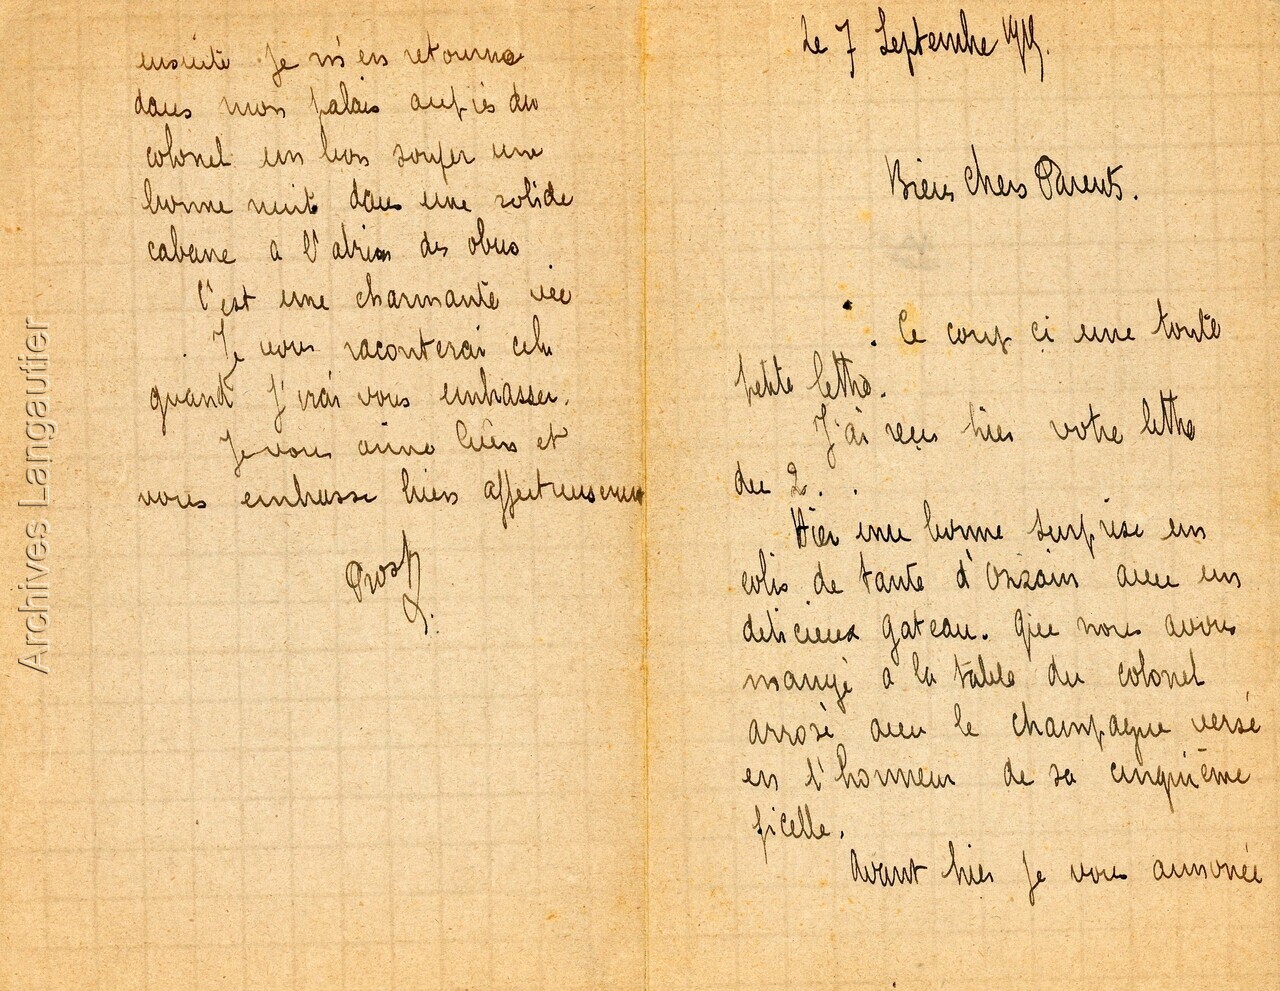 le 7 Septembre 1915.
Biens chers Parents.
Ce coup ci une toute
petite lettre.
J'ai reçus hier votre lettre
du 2.
Hier une bonne surprise un
colis de tante d'Onzain avec un
delicieux gateau. Que nous avons
mangé a la table du colonel
arrosé avec le champagne versé
en l'honneur de sa cinquième
ficelle.
Avant hier je vous annonée
ensuite je m'en retourne
dans mon palais aupres du
colonel un bon souper une
bonne nuit dans une solide
cabane a l'abris des obus
C'est une charmante vie
Je vous raconterai cela
quand J'irai vous embrasser.
Je vous aime bien et
vous embrasse biens affectueusement
Prosp
L.
Archives Langautier